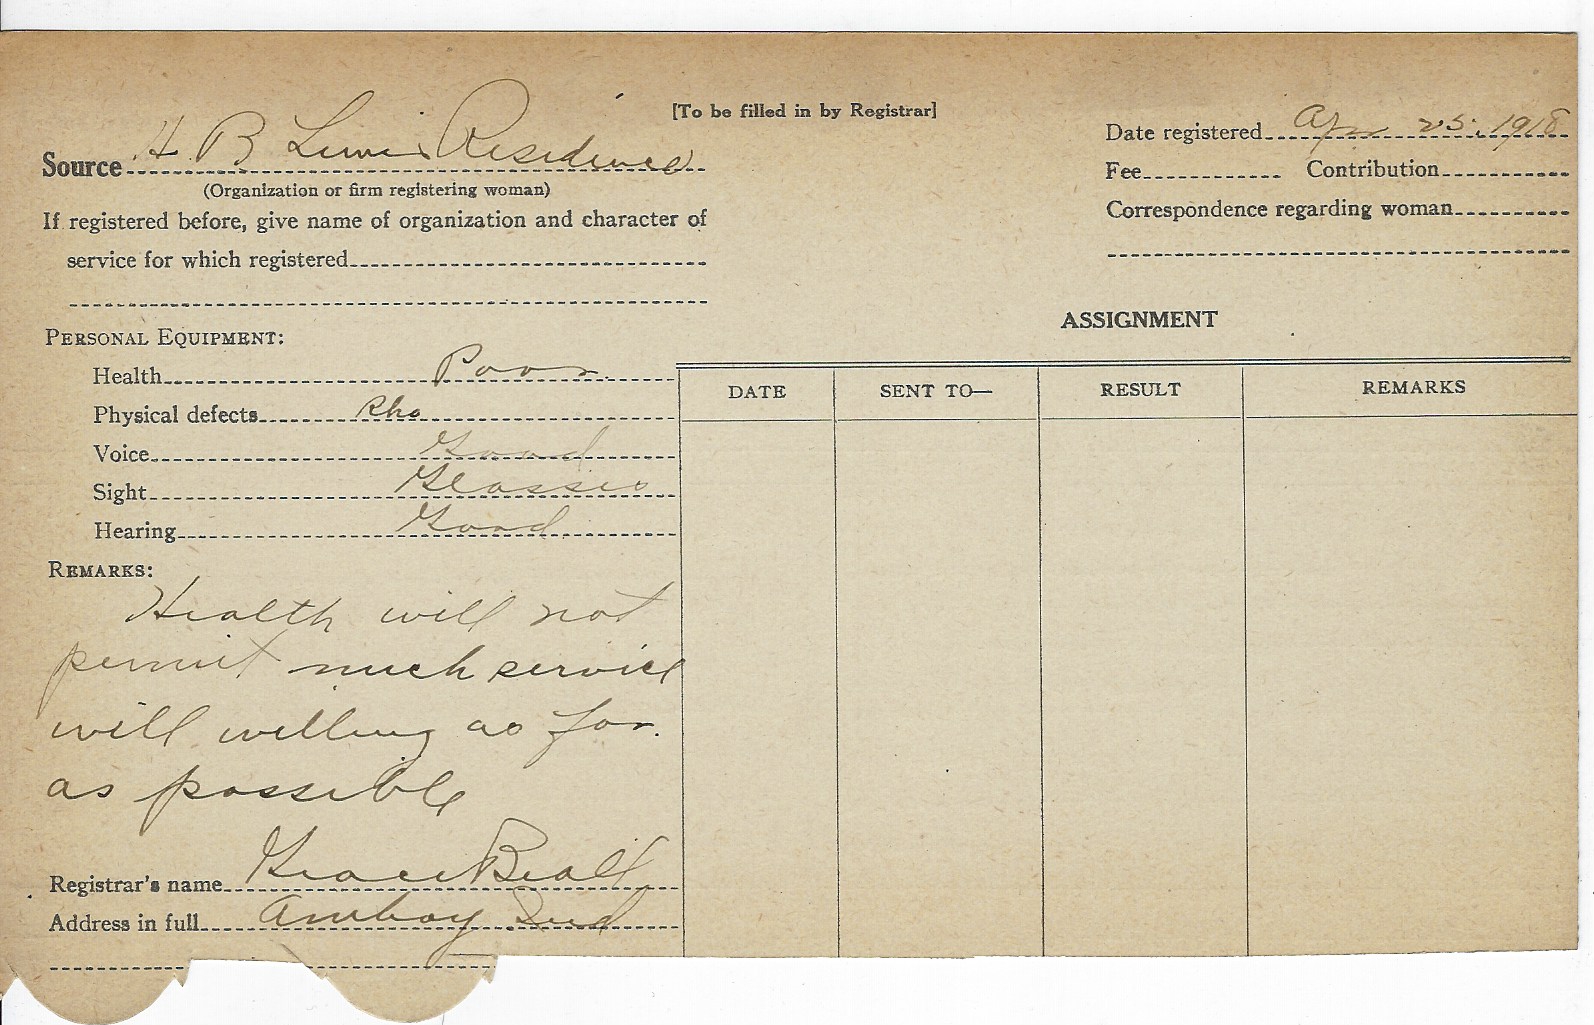 [To be filled in by Registrar]
Source H B Lewis Residence
(Organization or firm registering woman)
If registered before, give name of organization and character of
service for which registered
Date registered Apr 25, 1918
Fee Contribution
Correspondence regarding woman
PERSONAL EQUIPMENT:
Health Poor
Physical defects
Voice Good
Sight Glasses
Hearing Good
REMARKS:
Health will not
permit much service
will willing as far
as possible
Registrar's name Grace
Address in full Amboy Ind
ASSIGNMENT
DATE SENT TO— RESULT REMARKS